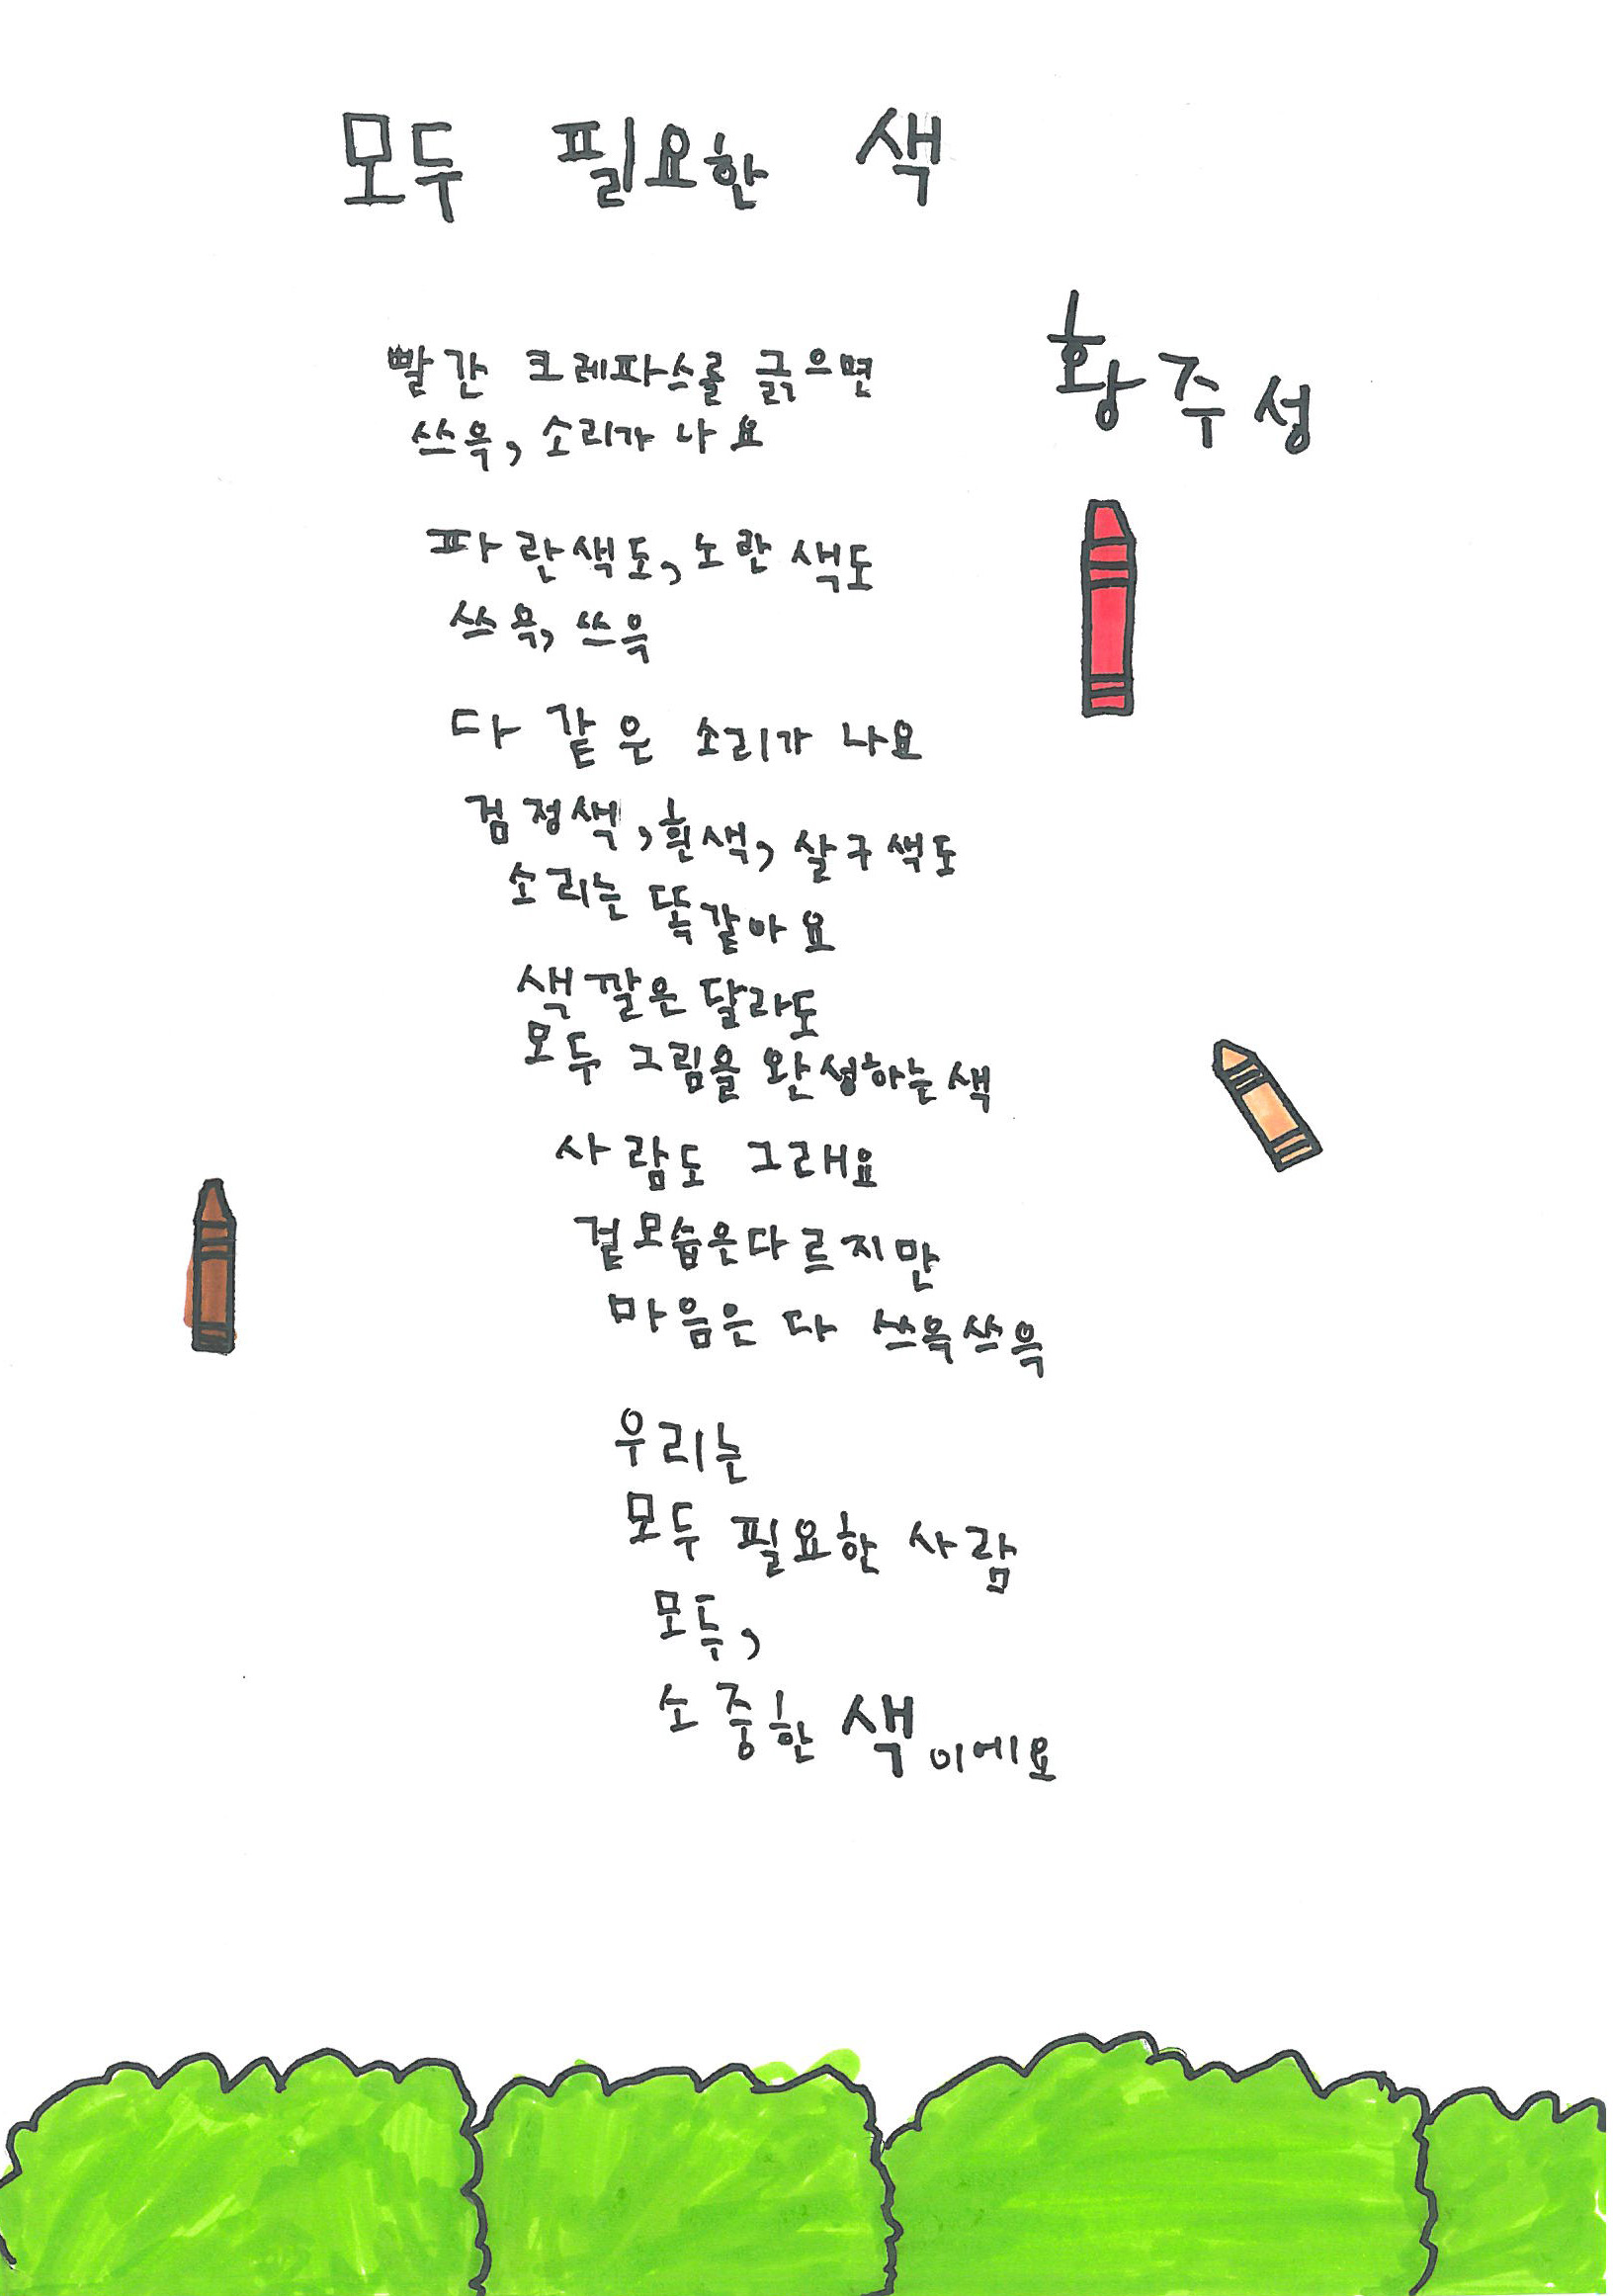 모두 필요한 색
황주성
빨간 크레파스를 긁으면
쓰윽, 소리가 나요
파란색도, 노란색도
쓰윽, 쓰윽
다 같은 소리가 나요
검정색, 흰색, 살구색도
소리는 똑같아요
색깔은 달라도
모두 그림을 완성하는색
사람도 그래요
겉모습은다르지만
마음은 다 쓰윽쓰윽
우리는
모두 필요한 사람
모두,
소중한 색이에요